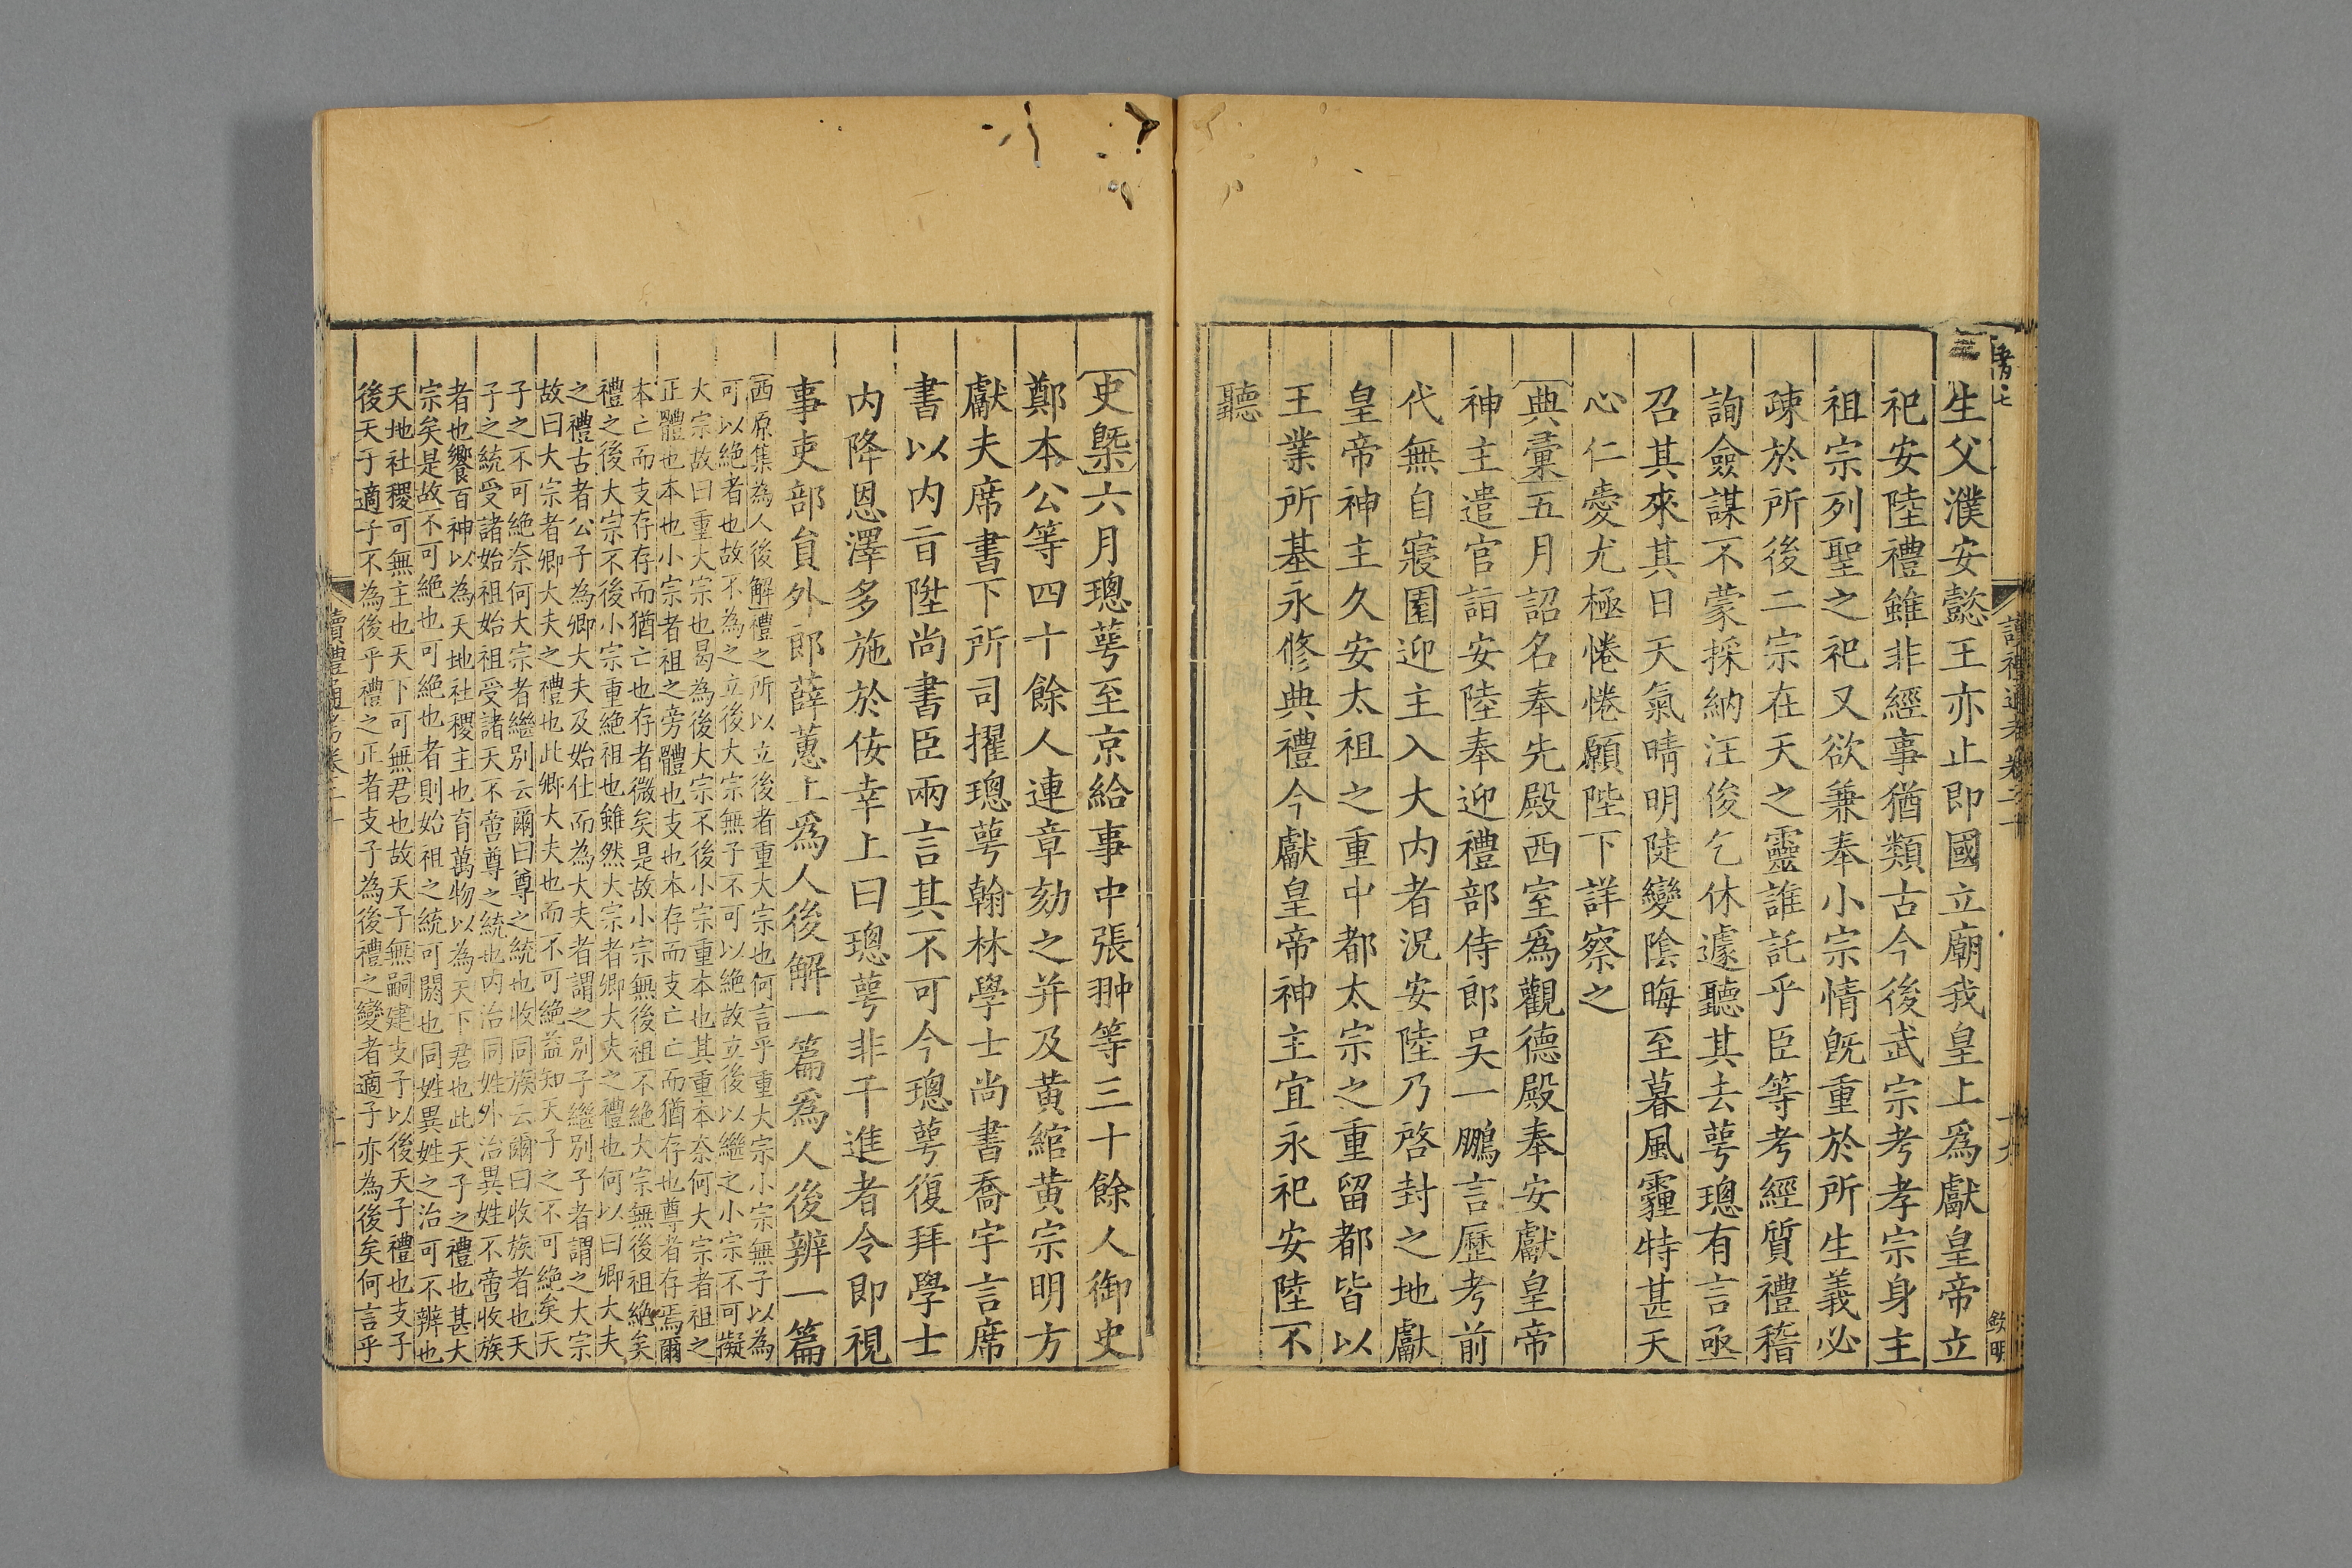 生父濮安懿王亦止即國立廟我皇上爲獻皇帝立
祀安陸禮雖非經事猶類古今後武宗考孝宗身主
祖宗列聖之祀又欲兼奉小宗情旣重於所生義必
疎於所後二宗在天之靈誰託乎臣等考經質禮稽
詢僉謀不蒙採納汪俊乞休遽聽其去萼璁有言亟
召其來其日天氣晴明陡變陰晦至暮風霾特甚天
心仁愛尤極惓惓願陛下詳察之
典彙五月詔名奉先殿西室爲觀德殿奉安獻皇帝
神主遣官詣安陸奉迎禮部侍郎吳一鵬言歷考前
代無自寢園迎主入大内者況安陸乃啓封之地獻
皇帝神主久安太祖之重中都太宗之重留都皆以
王業所基永修典禮今獻皇帝神主宜永祀安陸不
聽
史槩六月璁萼至京給事中張翀等三十餘人御史
鄭本公等四十餘人連章劾之并及黃綰黃宗明方
獻夫席書下所司擢璁萼翰林學士尚書喬宇言席
書以内旨陞尚書臣兩言其不可今璁萼復拜學士
内降恩澤多施於佞幸上曰璁萼非干進者令即視
事吏部員外郎薛蕙上爲人後解一篇爲人後辨一篇
西原集為人後解禮之所以立後者重大宗也何言乎重大宗小宗無子以為
可以絶者也故不為之立後大宗無子不可以絶故立後以繼之小宗不可擬
大宗故曰重大宗也曷為後大宗不後小宗重本也其重本奈何大宗者祖之
正體也本也小宗者祖之旁體也支也本存而支亡亡而猶存也尊者存焉爾
本亡而支存存而猶亡也存者微矣是故小宗無後祖不絶大宗無後祖絶矣
禮之後大宗不後小宗重絶祖也雖然大宗者卿大夫之禮也何以曰卿大夫
之禮古者公子為卿大夫及始仕而為大夫者謂之别子繼别子者謂之大宗
故曰大宗者卿大夫之禮也此卿大夫也而不可絶益知天子之不可絶矣天
子之不可絶奈何大宗者繼别云爾曰尊之統也收同族云爾曰收族者也天
子之統受諸始祖始祖受諸天不啻尊之統也内治同姓外治異姓不啻收族
者也饗百神以為天地社稷主也育萬物以為天下君也此天子之禮也甚大
宗矣是故不可絶也可絶也者則始祖之統可閼也同姓異姓之治可不辨也
天地社稷可無主也天下可無君也故天子無嗣建支子以後天子禮也支子
後天子適子不為後乎禮之正者支子為後禮之變者適子亦為後矣何言乎
讀禮通考卷二十